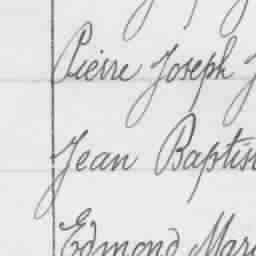 Pierre Joseph J
Jean Baptis
Edmond Mari